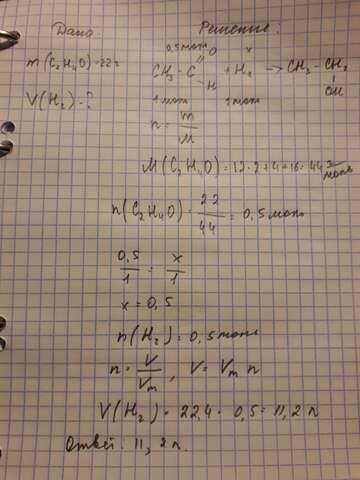 Дано: Решение:
m(C2H4O) = 22г
V(H2) - ?
0,5 моль x
CH3 - C O H + H2 → CH3 - CH2 OH
1 моль 1 моль
n = m/M
M(C2H4O) = 12·2+4+16 = 44 г/моль
n(C2H4O) = 22/44 = 0,5 моль
0,5/1 = x/1
x = 0,5
n(H2) = 0,5 моль
n = V/Vm, V = Vm n
V(H2) = 22,4 · 0,5 = 11,2 л
Ответ: 11,2 л.